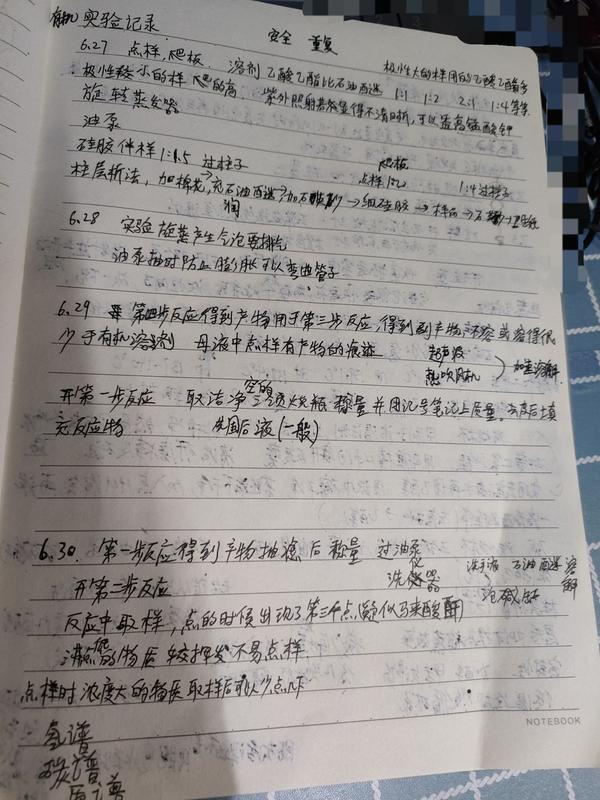 有机实验记录
安全 重复
6.27 点样,爬板. 溶剂乙酸乙酯比石油醚 1:1 1:2 2:1 1:4等等 极性大的样用的乙酸乙酯多
极性较小的样 爬的高. 紫外照射若发显得不清晰,可以蘸高锰酸钾
旋转蒸发器
油泵
硅胶伴样1:1.5 过柱子 爬板
柱层析法,加棉花→充石油醚→加石 →细硅胶→样品→石
润 点样 1:4过柱子
6.28 实验旋蒸产生气泡要排气
油泵抽时防止膨胀可以弯曲管子
6.29 第四步反应得到产物用于第三步反应,得到副产物,不溶或溶得很
少于有机溶剂 母液中点样有产物的痕迹 超声波
热吹风机 加重溶解.
开第一步反应 取洁净空的 烧瓶 称量并用记号笔记上质量. 然后填
充反应物 先固后液(一般)
6.30. 第一步反应得到产物抽滤后称量 过油泵
开第二步反应 洗仪器 洗手液 石油醚溶解
泡碱缸
反应中取样,点的时候出现了第三个点(疑似马来酸酐)
沸点 的物质较挥发不易点样
点样时浓度大的 取样后可以少点几下
氢谱
碳谱
质谱
NOTEBOOK